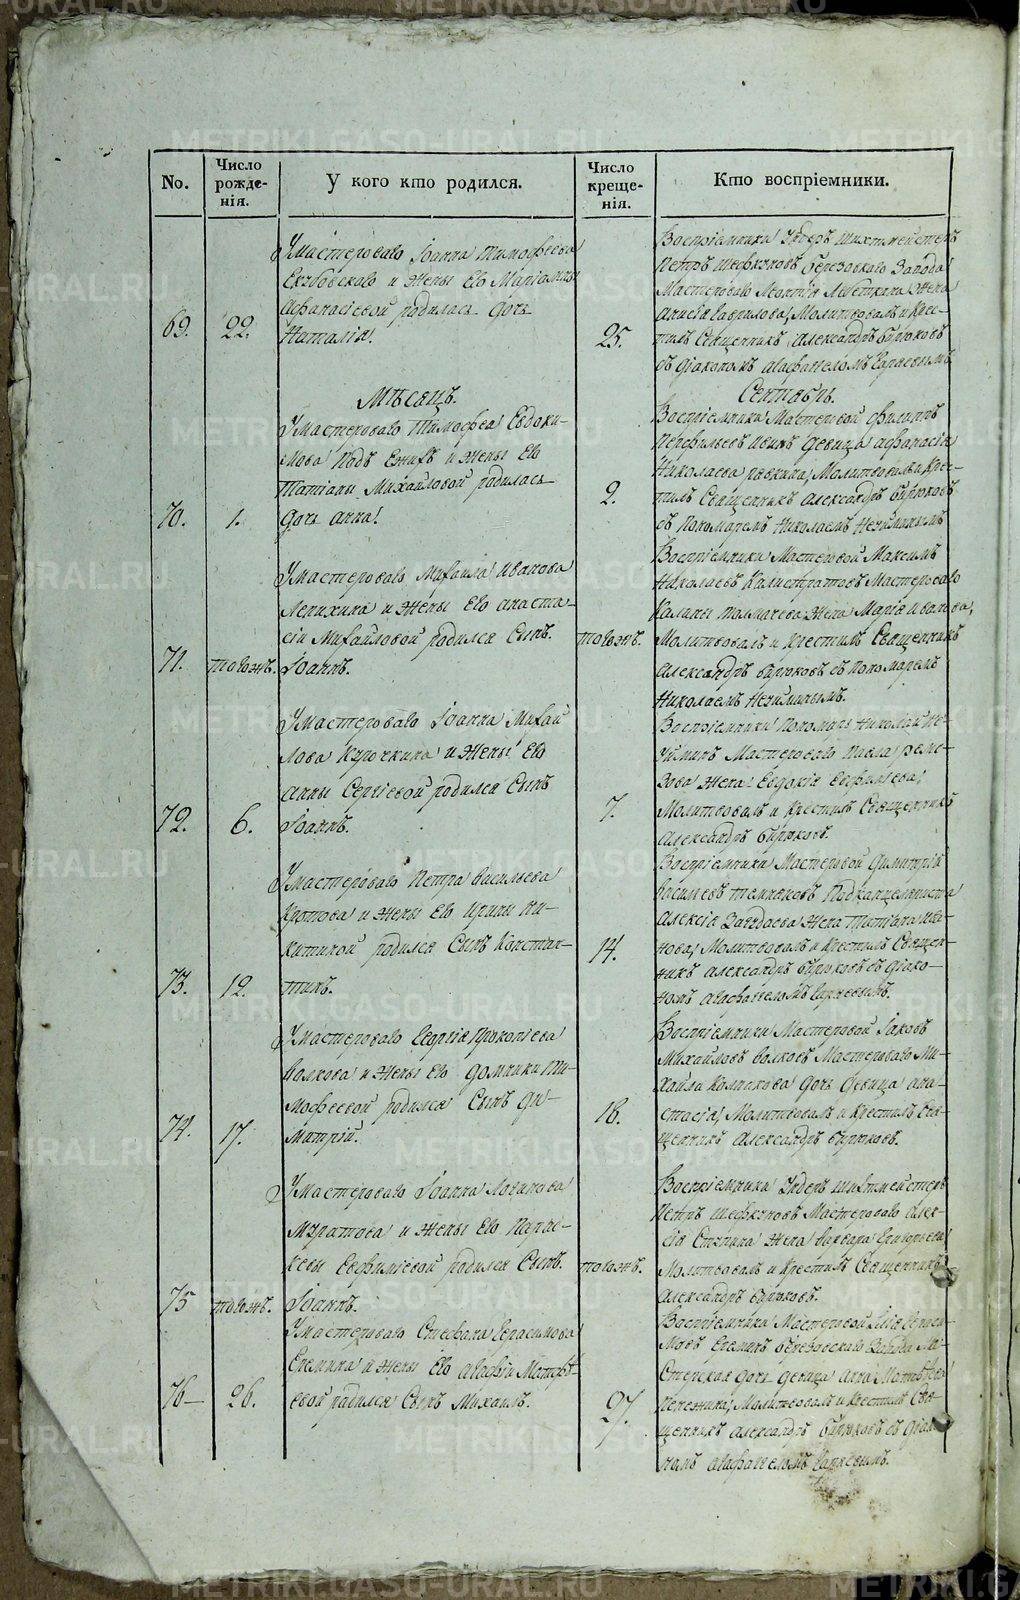 No.
Число рожде-нія.
У кого кто родился.
Число креще-нія.
Кто воспріемники.
69.
22.
У мастероваго Іоанна Тимофеева
и жены его Маріамны
Афанасіевой родилась дочь
Наталія.
25.
Воспріемники Ундеръ шихтмейстеръ
Петръ Шефкуновъ Березовскаго Завода
Мастероваго Леонтія жена
Анисія Гаврилова, Молитвовалъ и Кре-
стилъ Священникъ Александръ Бирюковъ
съ діакономъ
Мѣсяцъ.
Сентябрь.
70.
1.
У мастероваго Тимофеа Евдоки-
мова и жены его
Татіаны Михайловой родилась
дочь Анна.
2.
Воспріемники Мастеровой Филиппъ
девица Афанасія
Николаева Молитвовалъ и Кре-
стилъ Священникъ Александръ Бирюковъ
съ Пономаремъ Николаемъ
71.
тогожъ.
У мастероваго Михаила Иванова
Лепихина и жены его Анаста-
сіи Михайловой родился Сынъ
Іоаннъ.
тогожъ.
Воспріемники Мастеровой Максимъ
Николаевъ Калистратовъ Мастероваго
Толмачева жена Марія Иванова,
Молитвовалъ и Крестилъ Священникъ
Александръ Бирюковъ съ Пономаремъ
Николаемъ
72.
6.
У мастероваго Іоанна Михай
лова Курочкина и жены его
Анны Сергіевой родился Сынъ
Іоаннъ.
7.
Воспріемники Пономарь Николай
Мастероваго Павла Реме-
зова жена Евдокія
Молитвовалъ и Крестилъ Священникъ
Александръ Бирюковъ.
73.
12.
У мастероваго Петра Васильева
Кротова и жены его Ирины Ни-
китиной родился Сынъ Констан-
тинъ.
14.
Воспріемники Мастеровой Димитрій
Васильевъ Подканцеляриста
Алексія жена Татіана Ива-
нова, Молитвовалъ и Крестилъ Священ-
никъ Александръ Бирюковъ съ діако-
номъ
74.
17.
У мастероваго Георгія Прокопіева
Волкова и жены его Домники Ти-
мофеевой родился Сынъ Ди-
митрій.
18.
Воспріемники Мастеровой Іаковъ
Михайловъ Волковъ Мастероваго Ми-
хайла Колпакова дочь девица Ана-
стасія, Молитвовалъ и Крестилъ Свя-
щенникъ Александръ Бирюковъ.
75
тогожъ.
У мастероваго Іоанна Логинова
Муратова и жены его Парас-
кевы Евфиміевой родился Сынъ
Іоаннъ.
тогожъ.
Воспріемники Ундеръ шихтмейстеръ
Петръ Шефкуновъ Мастероваго Алек-
сія жена Варвара Григорьева
Молитвовалъ и Крестилъ Священникъ
Александръ Бирюковъ.
76
26.
У мастероваго Стефана Герасимова
Еремина и жены его Агафіи Матфѣ-
евой родился Сынъ Михаилъ.
27.
Воспріемники Мастеровой Ілія
Ереминъ Березовскаго Завода Ма-
стерская дочь девица Анна
Молитвовалъ и Крестилъ Свя-
щенникъ Александръ Бирюковъ съ діако-
номъ
METRIKI.GASO-URAL.RU